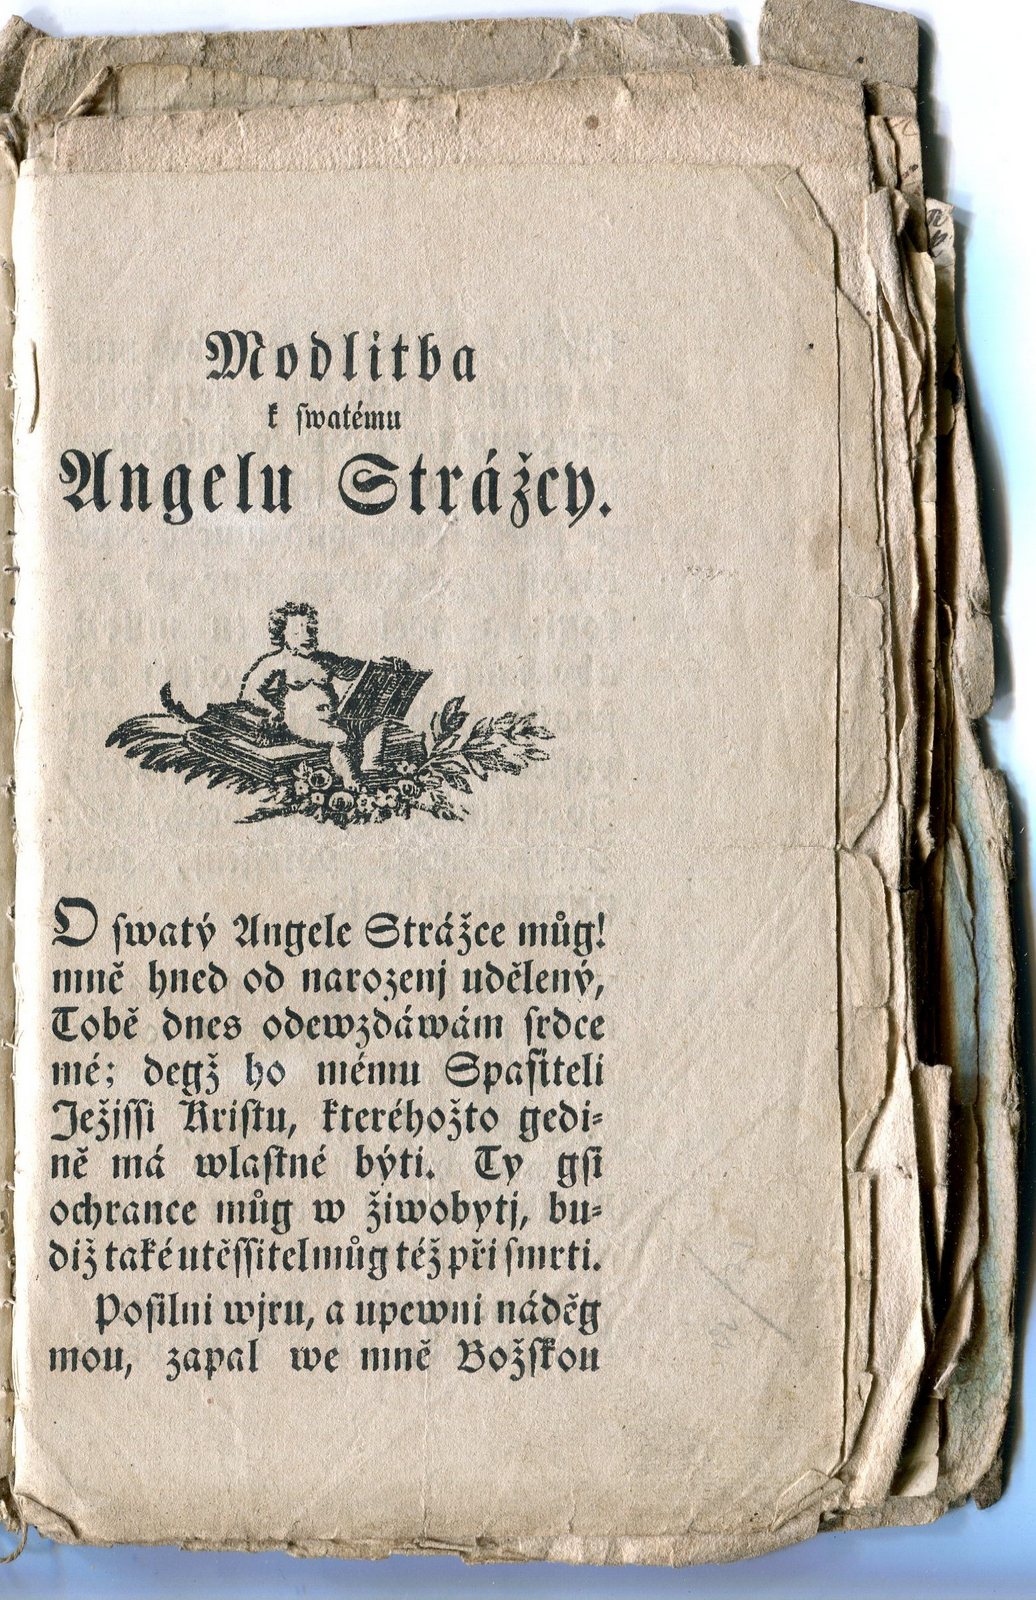 Modlitba
k swatému
Angelu Strážcy.
O swatý Angele Strážce můg!
mně hned od narozenj udělený,
Tobě dnes odewzdáwám srdce
mé; degž ho mému Spasiteli
Ježjssi Kristu, kteréhožto gedi-
ně má wlastné býti. Ty gsi
ochrance můg w žiwobytj, bu-
diž také utěssitel můg též při smrti.
Posilni wjru, a upewni náděg
mou, zapal we mně Božskou